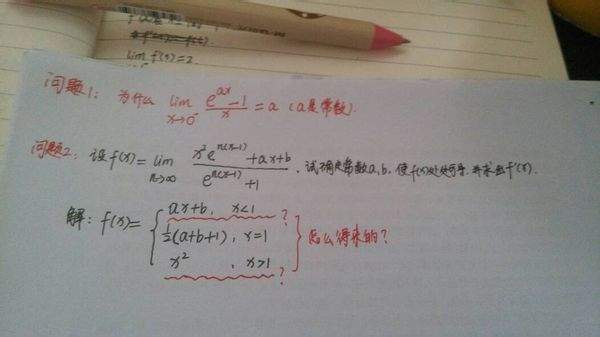 lim f(x)=2
问题1: 为什么 lim x→0⁻ (e^{ax}-1)/x = a (a是常数).
问题2: 设f(x)= lim n→∞ (x²e^{n(x-1)}+ax+b)/(e^{n(x-1)}+1). 试确定常数a,b, 使f(x)处处可导, 并求出f'(x).
解: f(x)= { ax+b, x<1 ?
½(a+b+1), x=1 } 怎么得来的?
x², x>1 ?